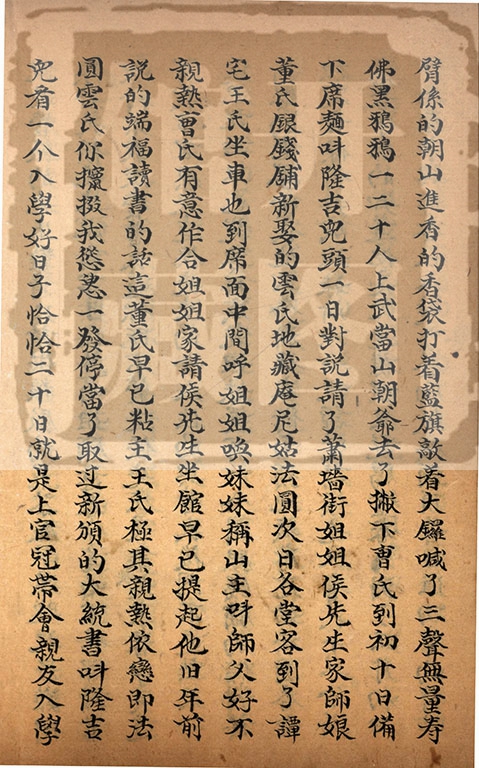 臂係的朝山進香的香袋打着藍旗敲着大鑼喊了三聲無量壽
佛黑鴉鴉一二十人上武當山朝爺去了撇下曹氏到初十日備
下席麺呌隆吉児頭一日對說請了蕭墻街姐姐侯先生家師娘
董氏銀錢舖新娶的雲氏地藏庵尼姑法圓次日各堂客到了譚
宅王氏坐車也到席面中間呼姐姐喚妹妹稱山主呌師父好不
親熱曹氏有意作合姐姐家請侯先生坐館早已提起他旧年前
說的端福讀書的話這董氏早已粘主王氏極其親熱依戀即法
圓雲氏你攛掇我慫慂一發停當了取过新頒的大統書呌隆吉
児看一个入學好日子恰恰二十日就是上官冠帶會親友入學